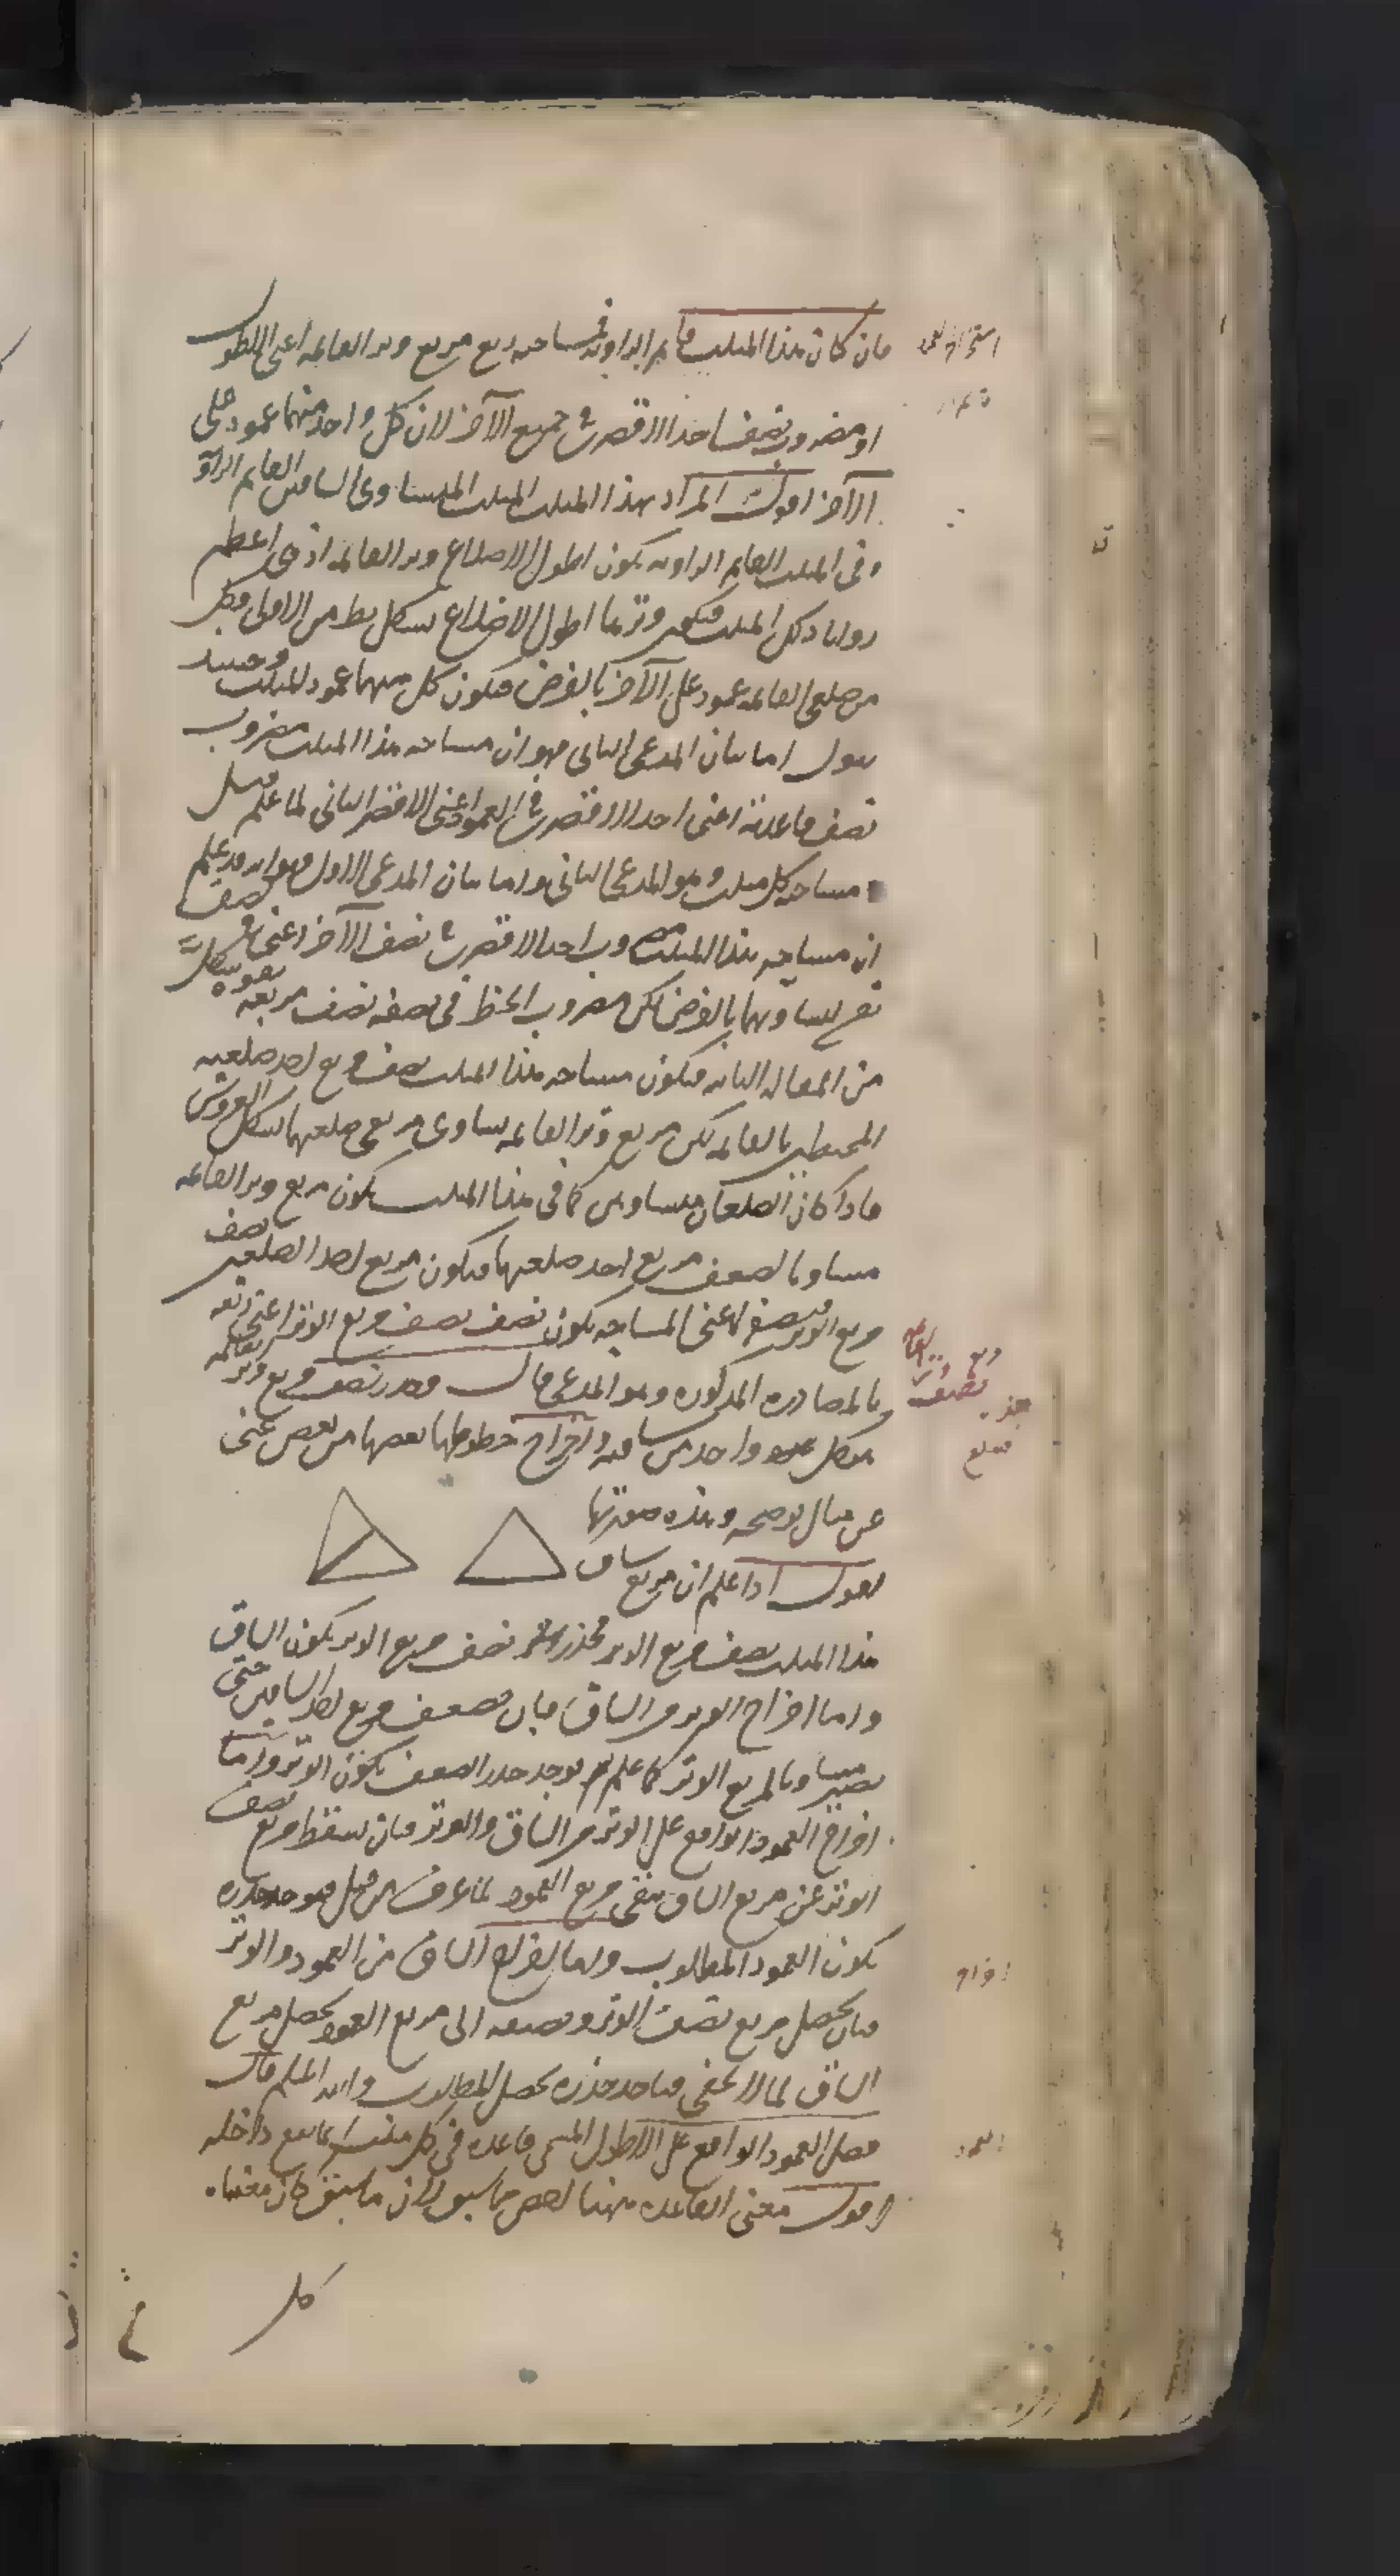 فان كان هذا المثلث قايم الزاويه فمساحته ربع مربع وتر القائمه اعنى الاطول
او مضروب نصف احد الاقصرين فى جميع الآخر لان كل واحد منهما عمود على
الآخر اقول المراد بهذا المثلث المثلث المتساوى الساقين القايم الزاوية
وفى المثلث القايم الزاويه يكون اطول الاضلاع وتر القائمه اذ هى اعظم
زوايا ذلك المثلث فيكون وترها اطول الاضلاع بشكل يط من الاولى وكل
من ضلعى القائمه عمود على الآخر بالفرض فيكون كل منهما عمود المثلث وحينئذ
نقول اما بيان المدعى الثانى فهو ان مساحه هذا المثلث مضروب
نصف قاعدته اعنى احد الاقصرين فى العمود اعنى الاقصر الثانى لما علم قبل
مساحه كل مثلث وهو المدعى الثانى واما بيان المدعى الاول فهو انه قد علم
ان مساحه هذا المثلث مضروب احد الاقصرين فى نصف الآخر اعنى فى نصف
نفسه لتساويهما بالفرض لكن مضروب الخط فى نصفه نصف مربعه بشكل
من المقاله الثانيه فيكون مساحه هذا المثلث نصف مربع احد ضلعيه
المحيطين بالقائمه لكن مربع وتر القائمه يساوى مربعى ضلعيها بشكل العروس
فاذا كان الضلعان متساويين كما فى هذا المثلث يكون مربع وتر القائمه
مساويا لضعف مربع احد ضلعيها فيكون مربع احد الضلعين نصف
مربع الوتر فنصفه اعنى المساحه يكون نصف نصف مربع الوتر اعنى ربعه
بالمصادره المذكوره وهو المدعى قال وجذر نصف مربع وتر القائمه
هو كل واحد من ساقيه واخراج خطوطها بعضها من بعض غنى
عن مثال توضيحه وهذه صورتها
نقول اذا علم ان مربع ساق
هذا المثلث نصف مربع الوتر فجذر نصف مربع الوتر يكون الساق
واما اخراج الوتر من الساق فبان تضعف مربع احد الساقين حتى
يصير مساويا لمربع الوتر كما علم ثم يوجد جذر الضعف يكون الوتر واما
اخراج العمود الواقع على الوتر من الساق والوتر فبان يسقط مربع نصف
الوتر عن مربع الساق يبقى مربع العمود لما عرف من قبل فهو جذره
يكون العمود المطلوب واما اخراج الساق من العمود والوتر
فبان يحصل مربع نصف الوتر ونضيفه الى مربع العمود يحصل مربع
الساق لما لا يخفى فناخذ جذره يحصل المطلوب والله الملهم قال
فصل العمود الواقع على الاطول المسمى قاعده فى كل مثلث انما يقع داخله
اقول معنى القاعده ههنا اخص مما سبق لان ما سبق كان معناه
كل